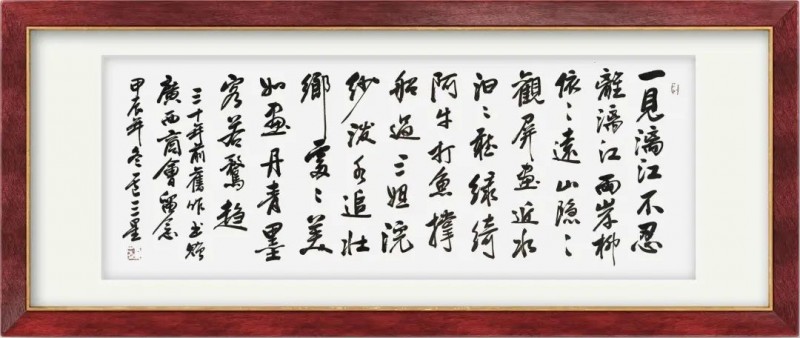 一見漓江不忍
離漓江兩岸柳
依〻遠山隱〻
觀屏畫近水
泊〻聽綠綺
阿牛打魚撑
船過三姐浣
紗潑水追壯
鄉處〻美
如畫丹青墨
客若鶩趨
三十年前舊作書贈
廣西商會留念
甲辰年冬三星